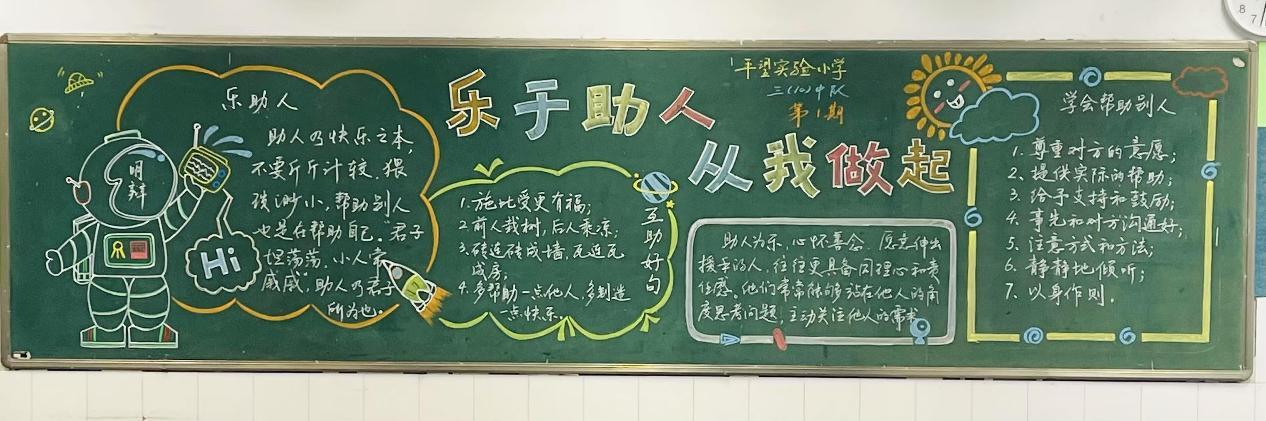 乐助人
助人乃快乐之本,
不要斤斤计较,猥
琐渺小,帮助别人
也是在帮助自己,君子
坦荡荡,小人常
戚戚,助人乃君子
所为也。
明
辩
Hi
乐于助人
从我做起
平望实验小学
三(10)中队
第1期
1.施比受更有福;
2.前人栽树,后人乘凉;
3.砖连砖成墙,瓦连瓦
成房;
4.多帮助一点他人,多制造
一点快乐。
互助好句
助人为乐,心怀善念,愿意伸出
援手的人,往往更具备同理心和责
任感。他们常常能够站在他人的角
度思考问题,主动关注他人的需求
学会帮助别人
1. 尊重对方的意愿;
2. 提供实际的帮助;
3. 给予支持和鼓励;
4. 事先和对方沟通好;
5. 注意方式和方法;
6. 静静地倾听;
7. 以身作则.
8
7